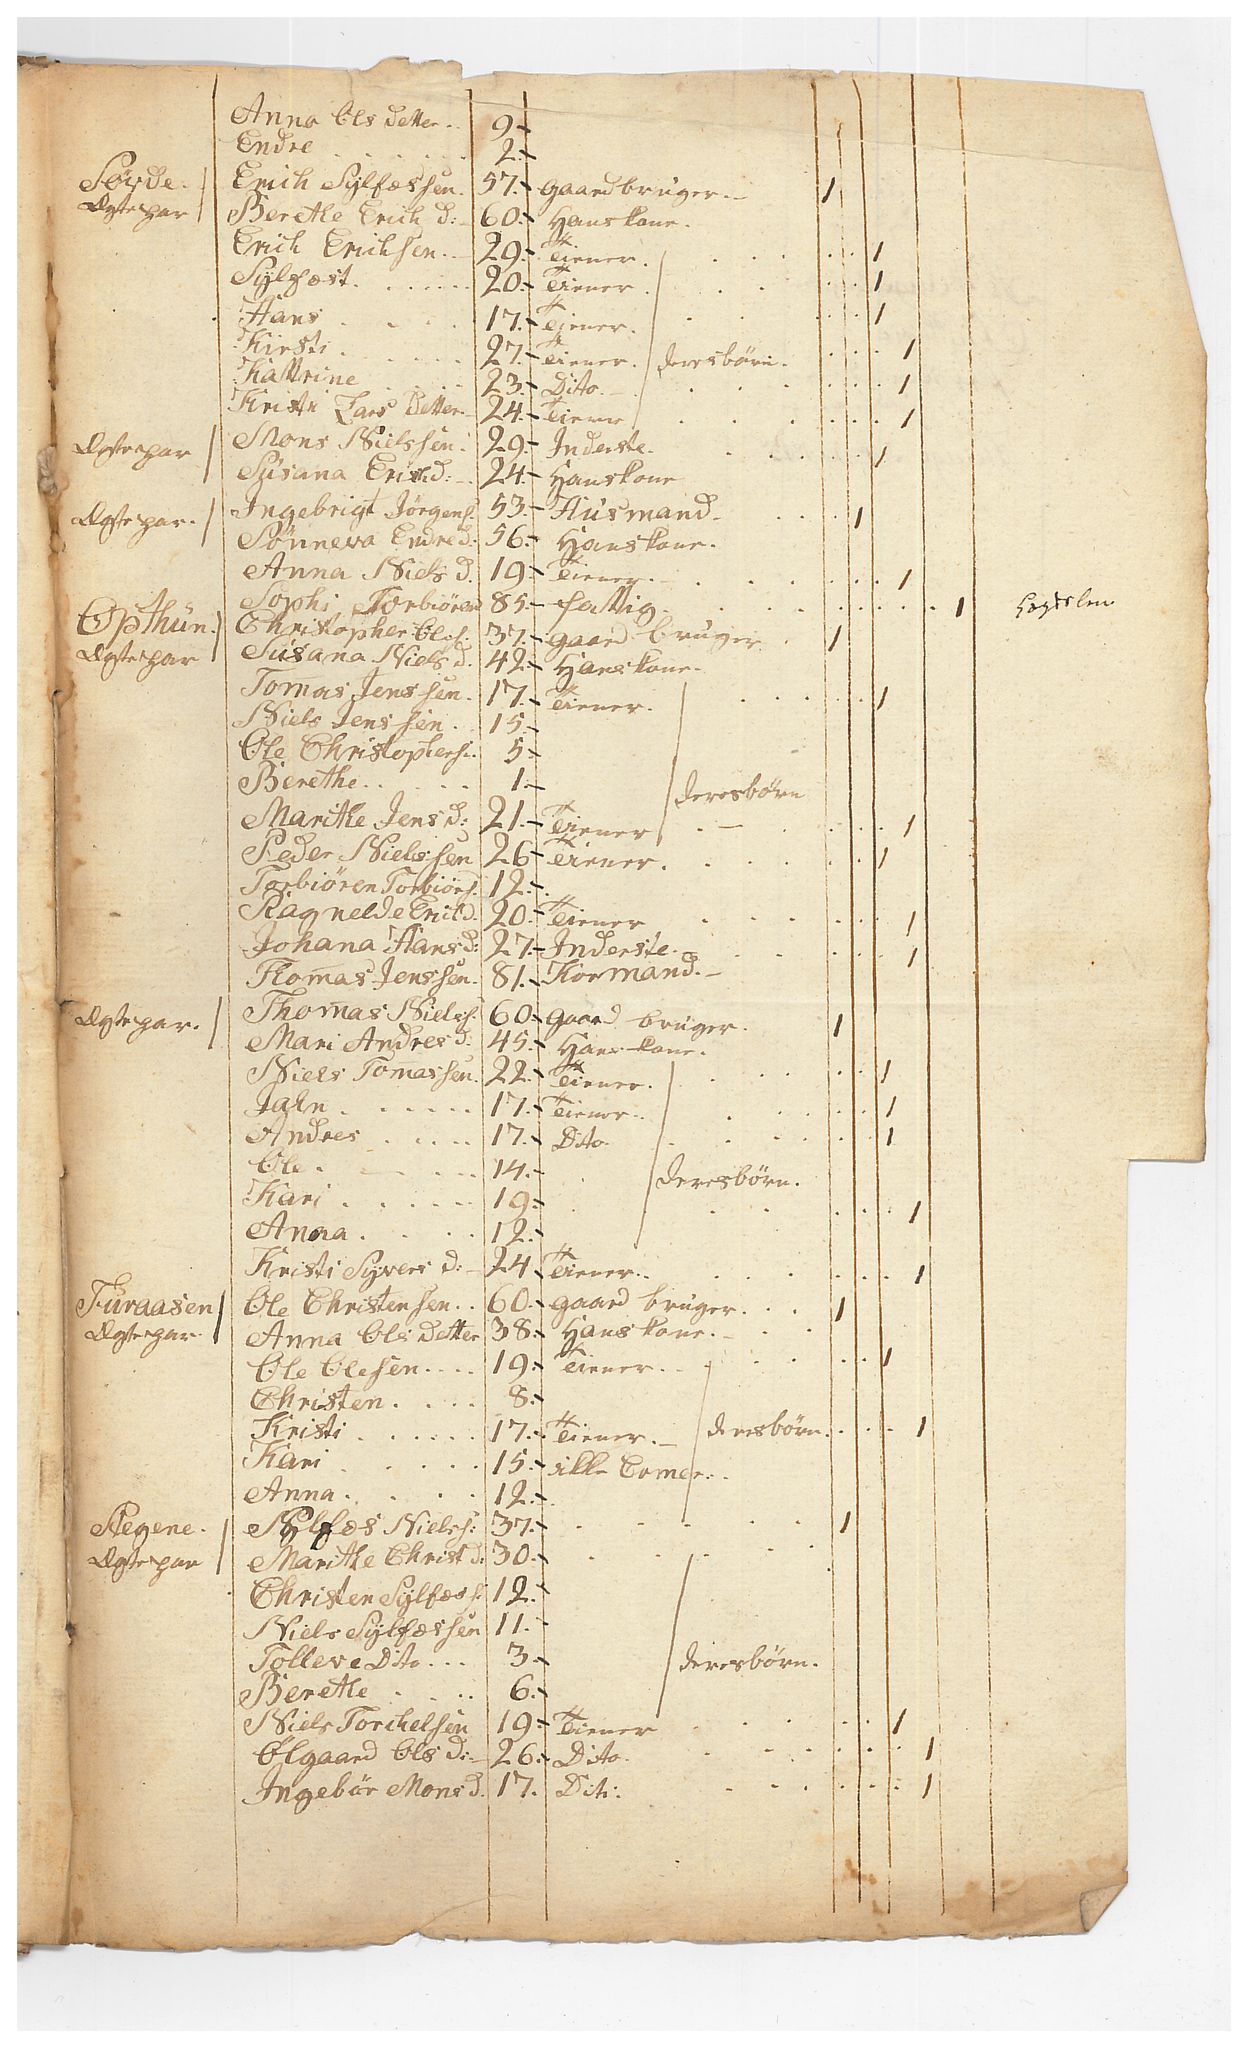 Anna Ols detter.. 9-
Endre . . . . . . 2.-
Sørde. Erich Sylfæssen. 57.- gaardbruger.- 1
Ægtepar Berethe Erich d:- 60.- Hanskone.
Erich Erichsen.- 29.- Tiener. . . . . . 1
Sylfæst. . . . . . 20.- Tiener. . . . . 1
Hans . . . . 17.- Tiener. . . . . 1
Kirsti . . . . . . 27.- Tiener. deresbörn. . . . 1
Kattrine . . . . 23.- Dito.- . . . . . 1
Kristi Lars detter- 24.- Tiener . . . . . 1
Ægtepar Mons Nielssen. 29.- Inderste. . . . . . 1
Susana Erich d:-. 24.- Hanskone
Ægtepar. Ingebrigt Jörgens. 53.- Husmand- . . . 1
Sönneva Endre d: 56.- Hanskone.
Anna Niels d. 19.- Tiener.- . . . . . . 1
Sophi Torbiören 85.- fattig. . . . . . . . . 1
Opthun. Christopher Oles: 37.- gaard bruger. 1
Ægtepar Susana Niels d. 42.- Hanskone.
Tomas Jenssen. 17.- Tiener. . . . . . 1
Niels Jenssen. 15.-
Ole Christophers:. 5.-
Berethe. . . . . 1.- deresbörn
Marithe Jens d: 21.- Tiener . - . . . . 1
Peder Nielssen 26- Tiener. . . . . . 1
Torbiören Torbiörs. 12.-.
Ragnelde Erich d. 20.- Tiener . . . . . . 1
Johana Hans d: 27.- Inderste. . . . . . 1
Thomas Jenssen. 81.- Kormand.-
Ægtepar. Thomas Nielss. 60.- gaard bruger. 1
Mari Andres d: 45.- Hans kone.
Niels Tomassen. 22.- Tiener. . . . . . 1
Jahn . . . . . . 17.- Tiener.. . . . . 1
Andres . . . . . 17.- Dito. . . . . . 1
Ole . . - . . . 14.- deresbörn.
Kari . . . . . . 19.- . . . . . . 1
Anna . . . . . 12.-
Kristi Syvers d:- 24 Tiener.. . . . . . 1
Furaasen Ole Christensen.. 60.- gaard bruger. . . 1
Ægtepar. Anna Ols detter 38.- Hans kone.- . .
Ole Olesen.... 19.- Tiener... . . . . 1
Christen. . . . . 8.-
Kristi . . . . . . 17.- Tiener.- deresbörn. . . . 1
Kari . . . . . 15.- ikke Comer...
Anna . . . . . 12.-.
Stegene. Sylfæs Nielss: 37.- . . . . . 1
Ægtepar Marithe Christ d: 30.- . . . . .
Christen Sylfæss: 12.-
Niels Sylfæssen 11.-
Tolleve Dito... 3.- deresbörn.
Berethe . . .. 6.-
Niels Torchelsen 19.- Tiener . . . . . 1
Olgaard Ols d:- 26.- Dito. . . . . . . 1
Ingebör Mons d. 17. Dito: . . . . . . 1